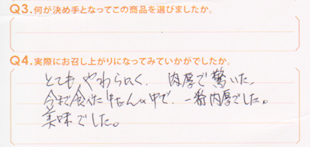 Q3.何が決め手となってこの商品を選びましたか。
Q4.実際にお召し上がりになってみていかがでしたか。
とてもやわらかく、肉厚で驚いた。
今まで食べた中で、一番肉厚でした。
美味でした。